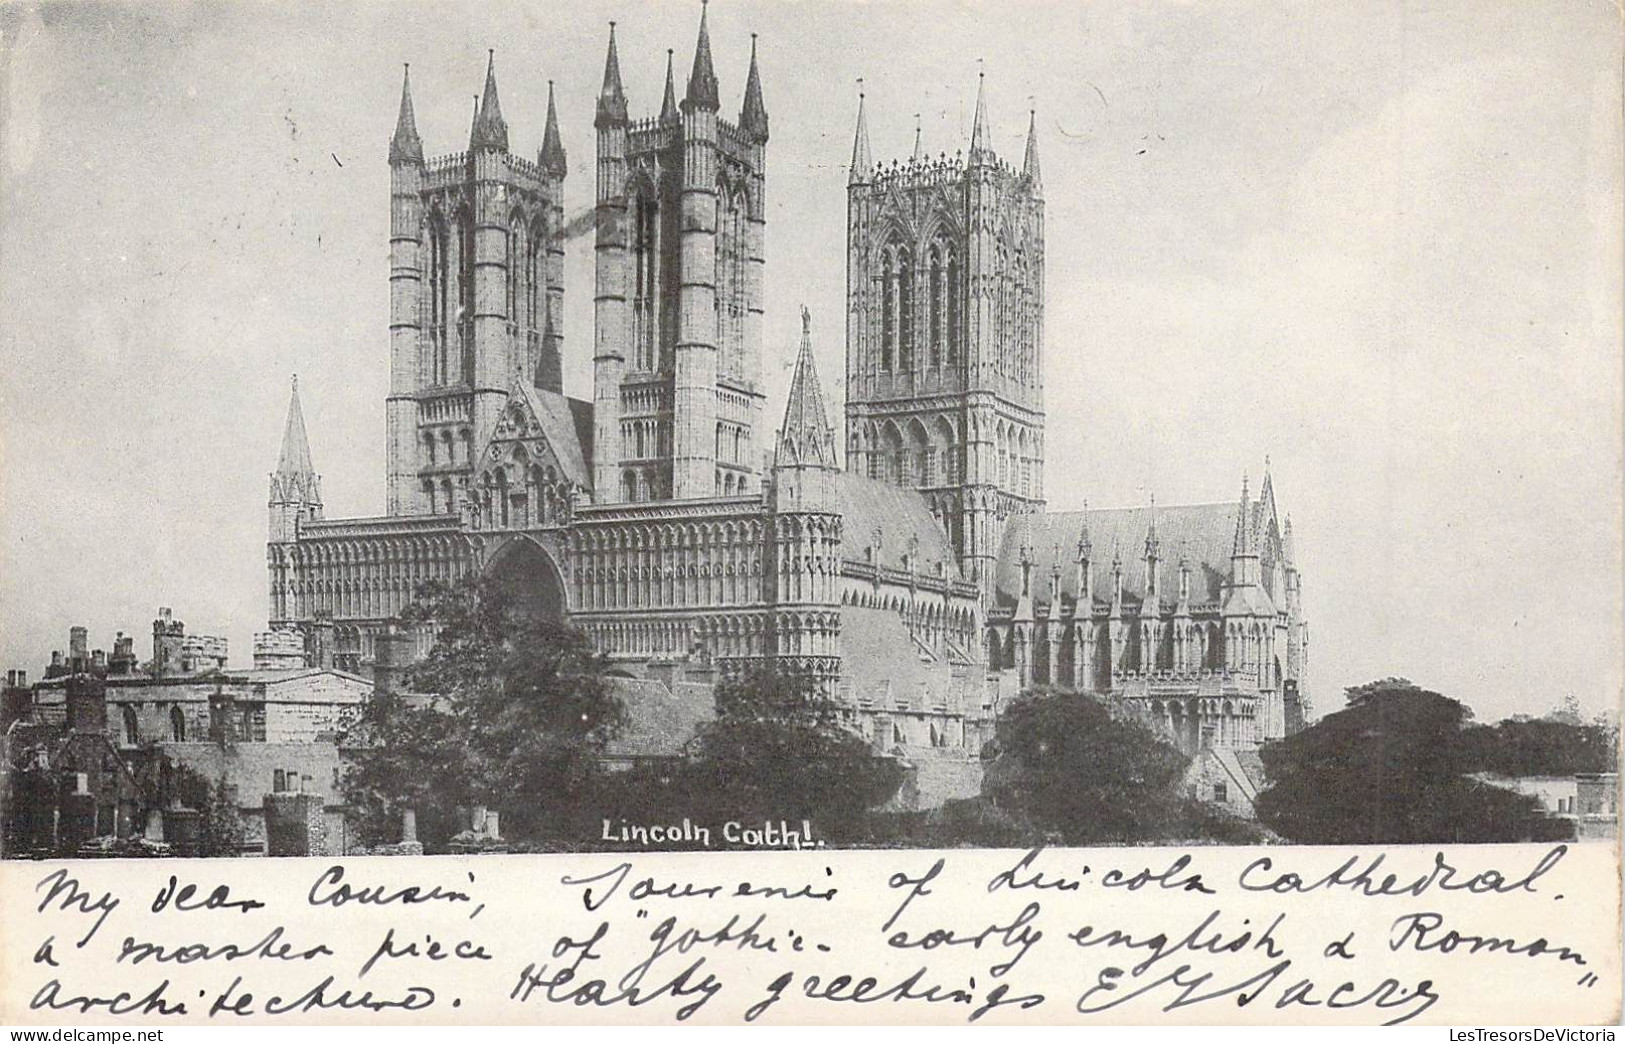 Lincoln Cathl.
My dear Cousin, Souvenir of Lincoln Cathedral.
a master piece of "gothic - early english & Roman"
architecture. Hearty greetings E
LesTresorsDeVictoria